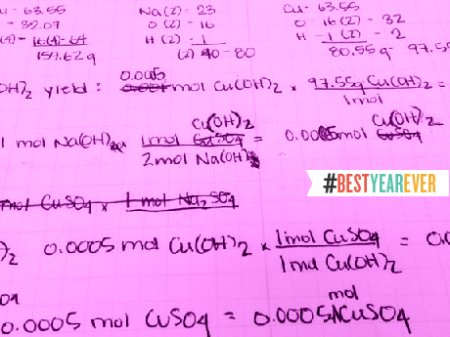 Cu - 63.55 Na (2) - 23 Cu - 63.55
- 32.07 O (2) - 16 O - 16 (2) - 32
(4) - 16(4) - 64 H (2) - 1 H - 1 (2) - 2
159.62g (2) 40 - 80 80.55g - 97.55
0.0005
OH)2 yield : mol Cu(OH)2 × 97.55g Cu(OH)2 =
1mol
Cu(OH)2 Cu(OH)2
1 mol Na(OH) × 1mol CuSO4 = 0.0005mol CuSO4
2mol Na(OH)
#BESTYEAREVER
mol CuSO4 × 1 mol Na2SO4
)2 0.0005 mol Cu(OH)2 × 1mol CuSO4 = 0.0
1mol Cu(OH)2
mol
0.0005 mol CuSO4 = 0.0005 CuSO4